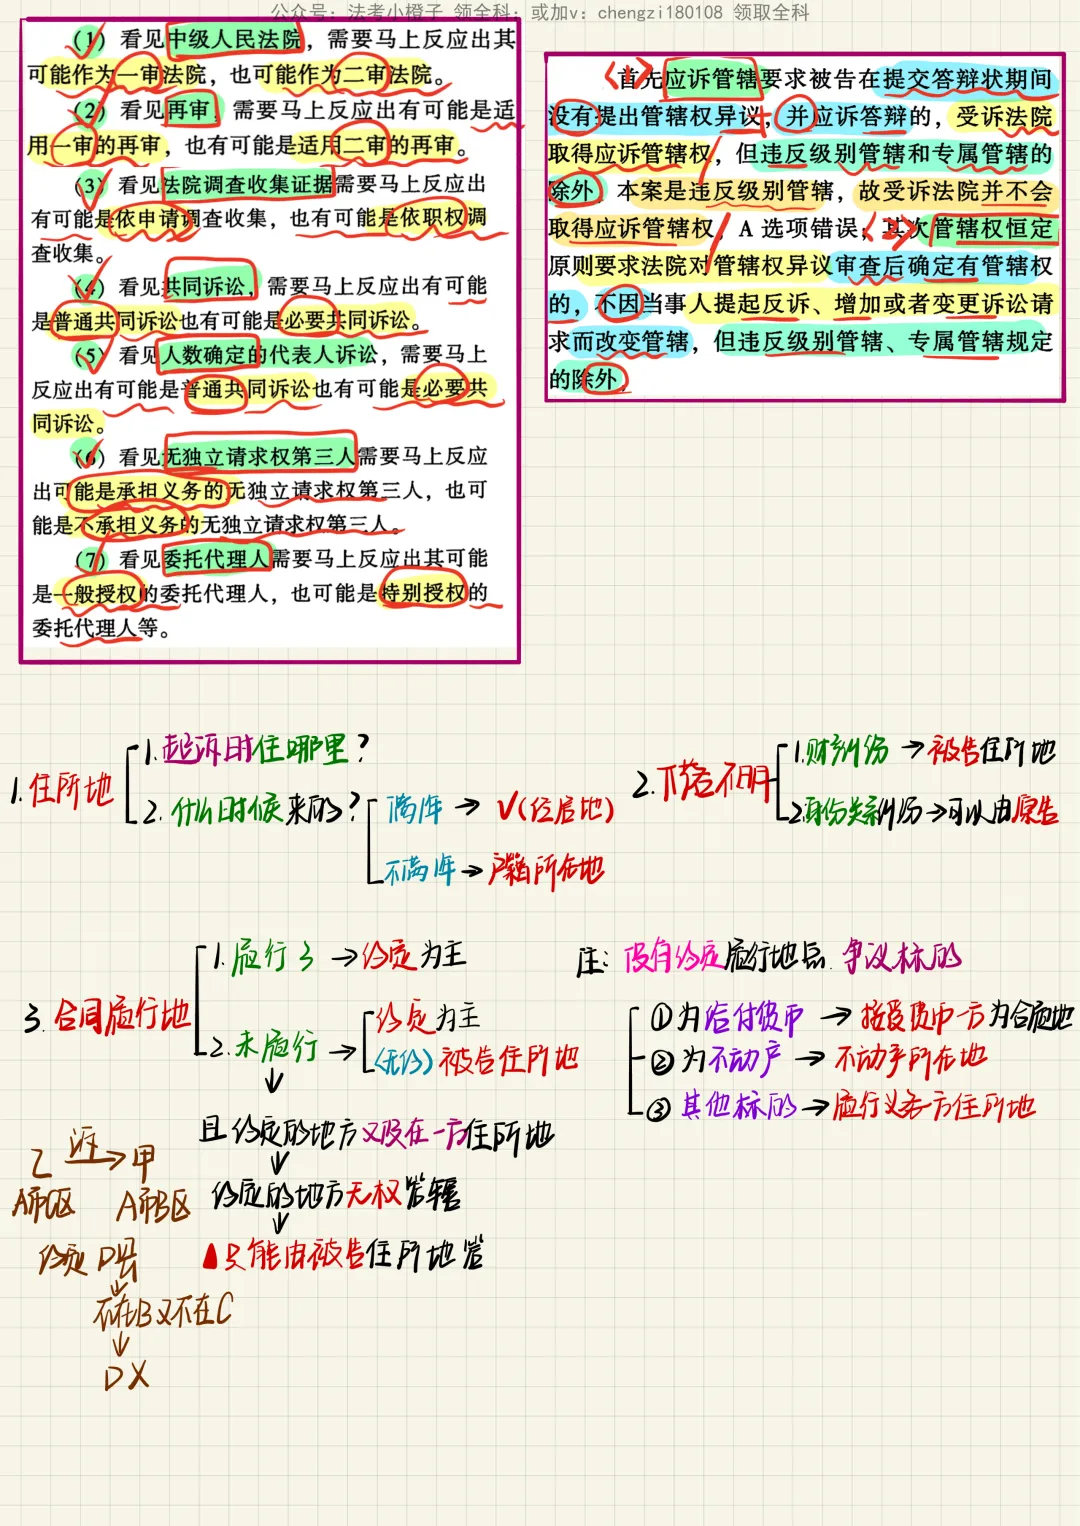 公众号：法考小橙子 领全科；或加v：chengzi180108 领取全科
（1）看见中级人民法院，需要马上反应出其
可能作为一审法院，也可能作为二审法院。
（2）看见再审，需要马上反应出有可能是适
用一审的再审，也有可能是适用二审的再审。
（3）看见法院调查收集证据需要马上反应出
有可能是依申请调查收集，也有可能是依职权调
查收集。
（4）看见共同诉讼，需要马上反应出有可能
是普通共同诉讼也有可能是必要共同诉讼。
（5）看见人数确定的代表人诉讼，需要马上
反应出有可能是普通共同诉讼也有可能是必要共
同诉讼。
（6）看见无独立请求权第三人需要马上反应
出可能是承担义务的无独立请求权第三人，也可
能是不承担义务的无独立请求权第三人。
（7）看见委托代理人需要马上反应出其可能
是一般授权的委托代理人，也可能是特别授权的
委托代理人等。
<1>首先应诉管辖要求被告在提交答辩状期间
没有提出管辖权异议，并应诉答辩的，受诉法院
取得应诉管辖权，但违反级别管辖和专属管辖的
除外。本案是违反级别管辖，故受诉法院并不会
取得应诉管辖权，A 选项错误；<2>其次管辖权恒定
原则要求法院对管辖权异议审查后确定有管辖权
的，不因当事人提起反诉、增加或者变更诉讼请
求而改变管辖，但违反级别管辖、专属管辖规定
的除外。
1.住所地
1.起诉时住哪里？
2.什么时候来的？
满1年 → √(经居地)
不满1年 → 户籍所在地
2.下落不明
1.财产纠纷 → 被告住所地
2.身份关系纠纷 → 可以由原告
3.合同履行地
1.履行了 → 约定为主
2.未履行 →
约定为主
(无约)被告住所地
↓
且约定的地方又没在一方住所地
↓
约定的地方无权管辖
↓
▲只能由被告住所地管
注：没有约定履行地点.争议标的
①为给付货币 → 接受货币一方为合履地
②为不动产 → 不动产所在地
③其他标的 → 履行义务一方住所地
乙 诉→ 甲
A市C区 A市B区
约定D县
↓
不在B又不在C
↓
D X